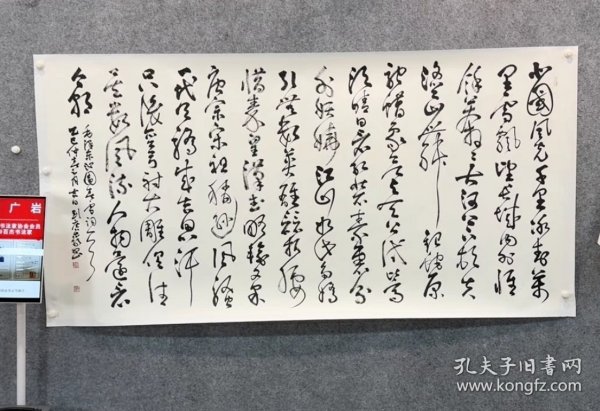 北国风光千里冰封万
里雪飘望长城内外惟
余莽莽大河上下顿失
滔滔山舞银蛇原
驰蜡象欲与天公试比高
须晴日看红装素裹分
外妖娆江山如此多娇
引无数英雄竞折腰
惜秦皇汉武略输文采
唐宗宋祖稍逊风骚
一代天骄成吉思汗
只识弯弓射大雕俱往
矣数风流人物还看
今朝
毛泽东沁园春雪词
广岩
书法家协会会员
书法家
孔夫子旧书网
www.kongfz.com